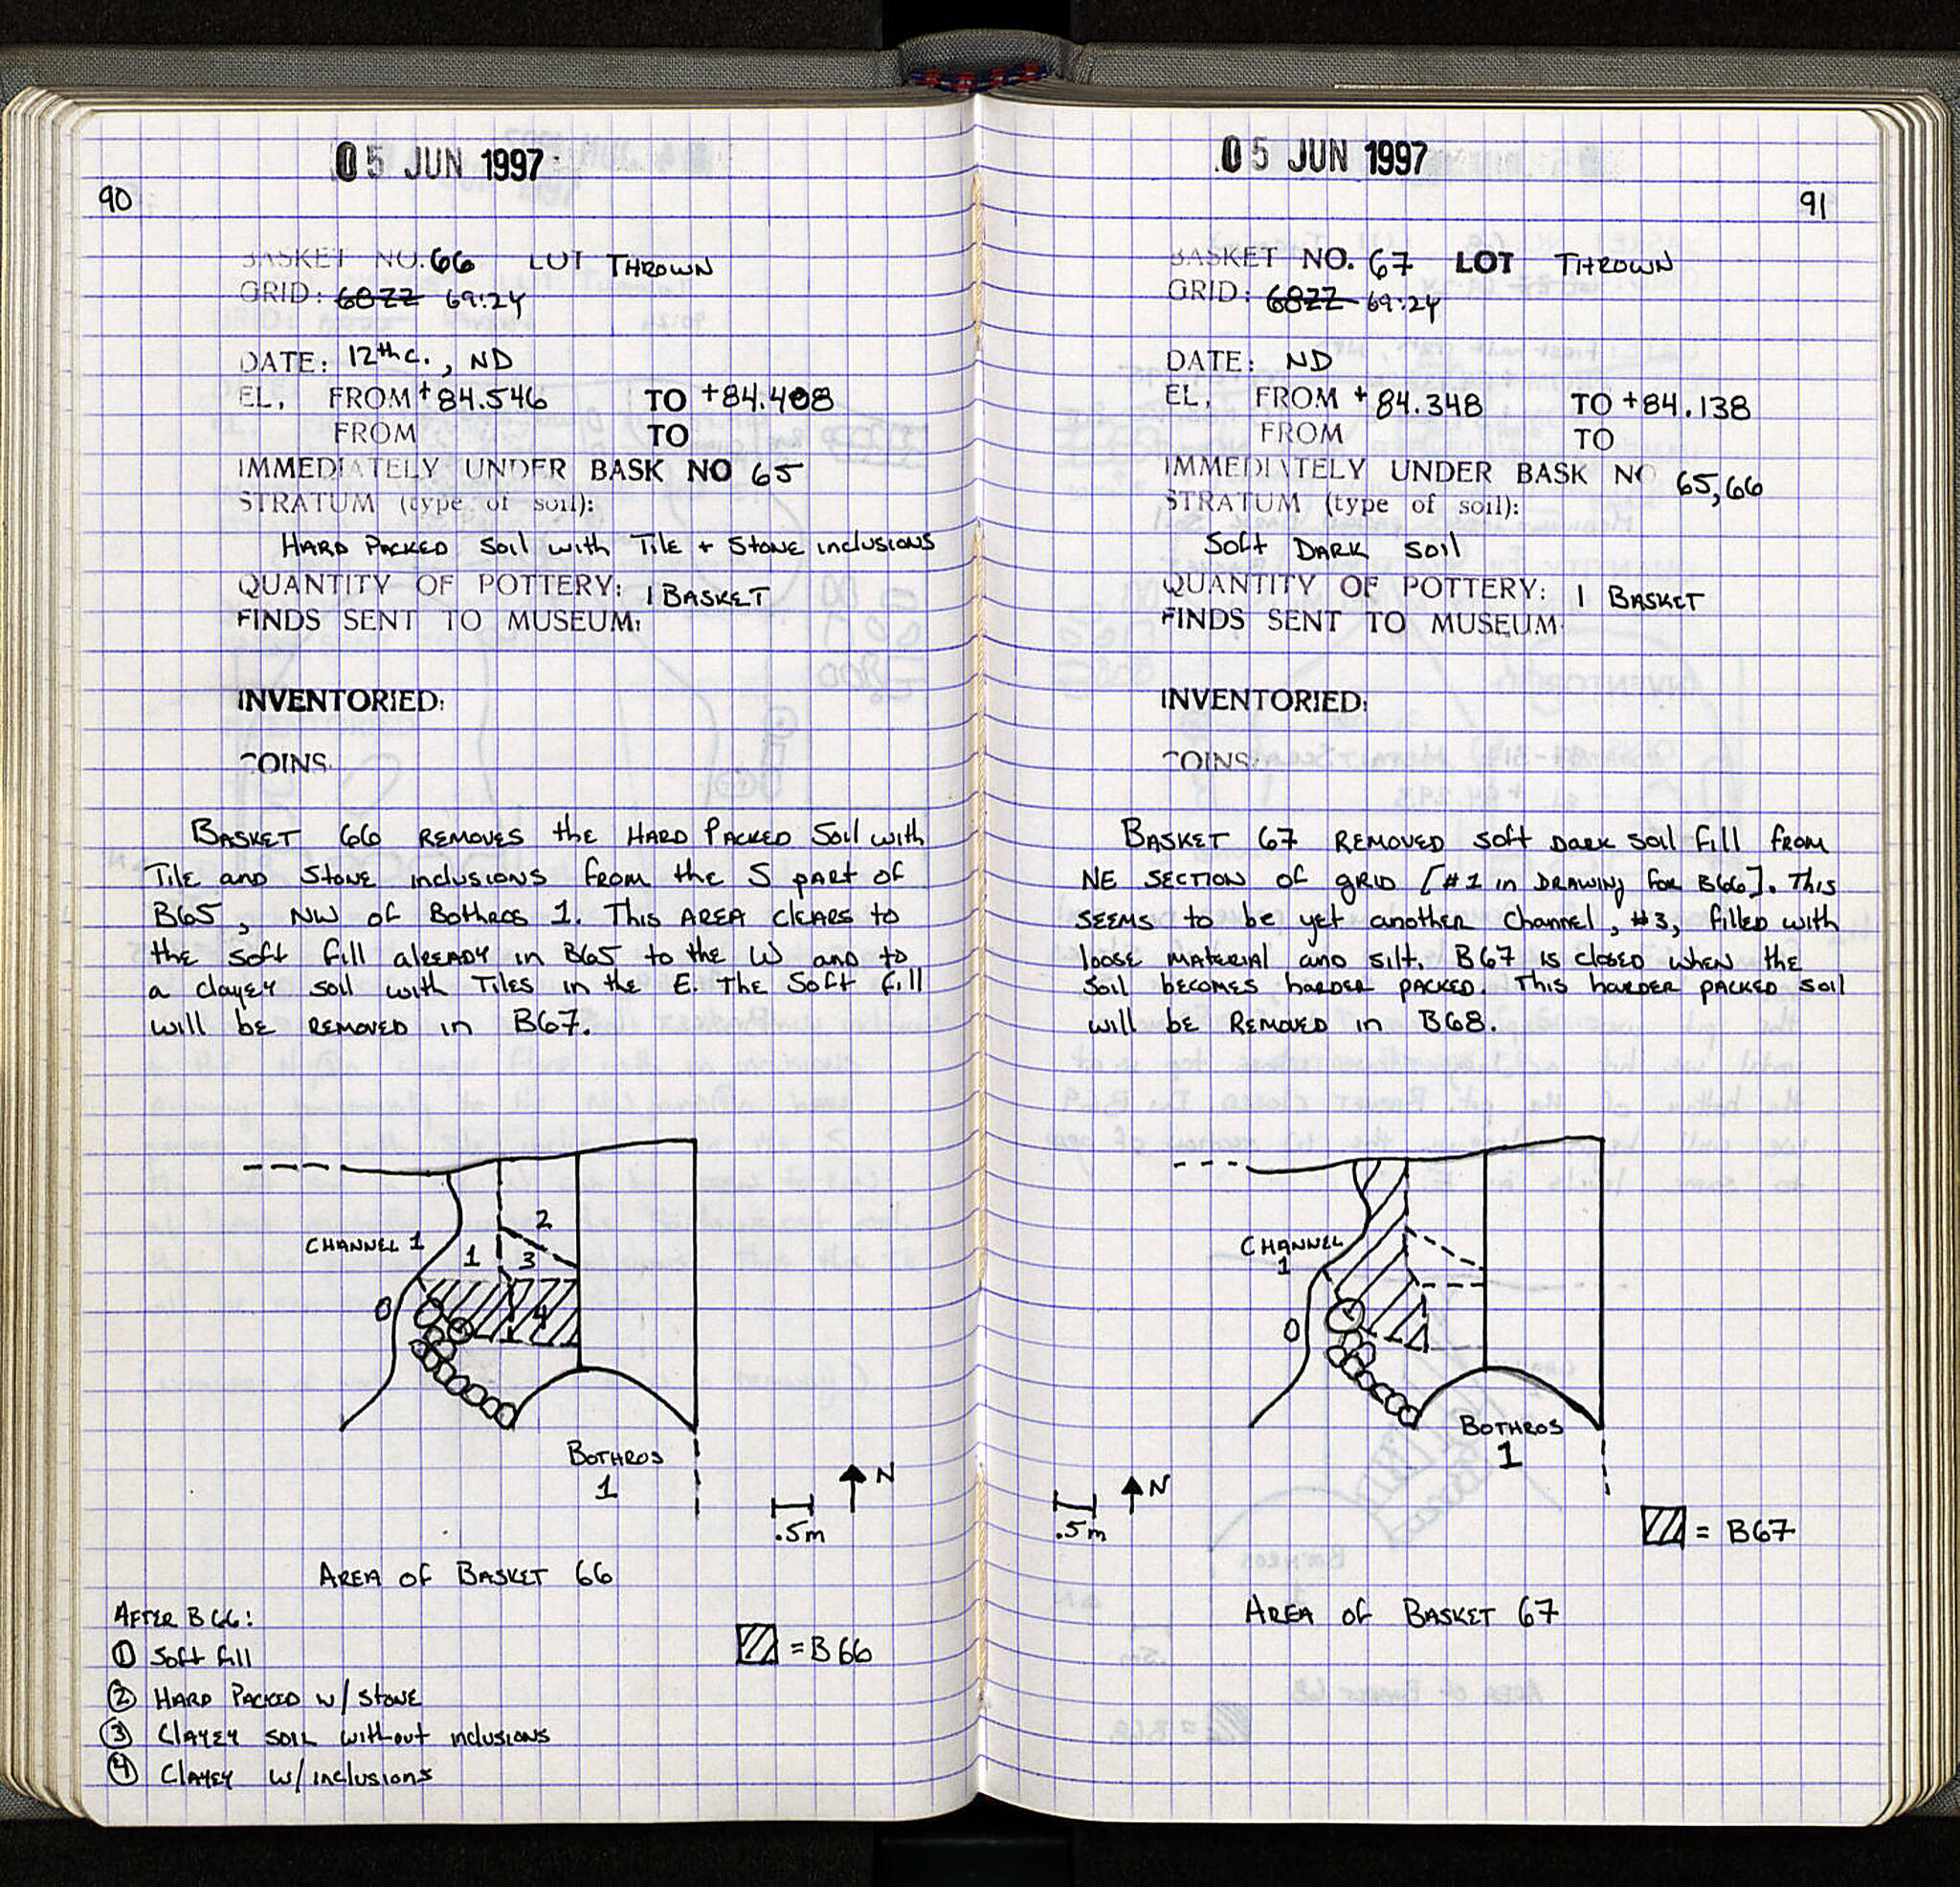 05 JUN 1997
90
BASKET NO. 66 LOT THROWN
GRID: 68ZZ 69:24
DATE: 12th c., ND
EL, FROM +84.546 TO +84.408
FROM TO
IMMEDIATELY UNDER BASK NO 65
STRATUM (type of soil):
HARD PACKED SOIL with TILE + STONE inclusions
QUANTITY OF POTTERY: 1 BASKET
FINDS SENT TO MUSEUM:
INVENTORIED:
COINS
BASKET 66 REMOVES the HARD PACKED Soil with
Tile and Stone inclusions from the S part of
B65, NW of Bothros 1. This AREA clears to
the soft fill already in B65 to the W and to
a clayey soil with Tiles in the E. The Soft fill
will be REMOVED in B67.
CHANNEL 1
1
2
3
4
BOTHROS
1
N
.5m
AREA of BASKET 66
AFTER B66:
① Soft fill
② HARD PACKED w/ stone
③ Clayey soil without inclusions
④ Clayey w/ inclusions
= B66
05 JUN 1997
91
BASKET NO. 67 LOT THROWN
GRID: 68ZZ 69:24
DATE: ND
EL, FROM +84.348 TO +84.138
FROM TO
IMMEDIATELY UNDER BASK NO 65,66
STRATUM (type of soil):
Soft DARK soil
QUANTITY OF POTTERY: 1 BASKET
FINDS SENT TO MUSEUM
INVENTORIED:
COINS:
BASKET 67 REMOVED soft DARK soil fill from
NE SECTION of grid [#1 in DRAWING for B66]. This
SEEMS to be yet another Channel, #3, filled with
loose MATERIAL and silt. B67 is closed when the
soil becomes harder packed. This harder packed soil
will be REMOVED in B68.
CHANNEL
1
BOTHROS
1
N
.5m
= B67
AREA of BASKET 67